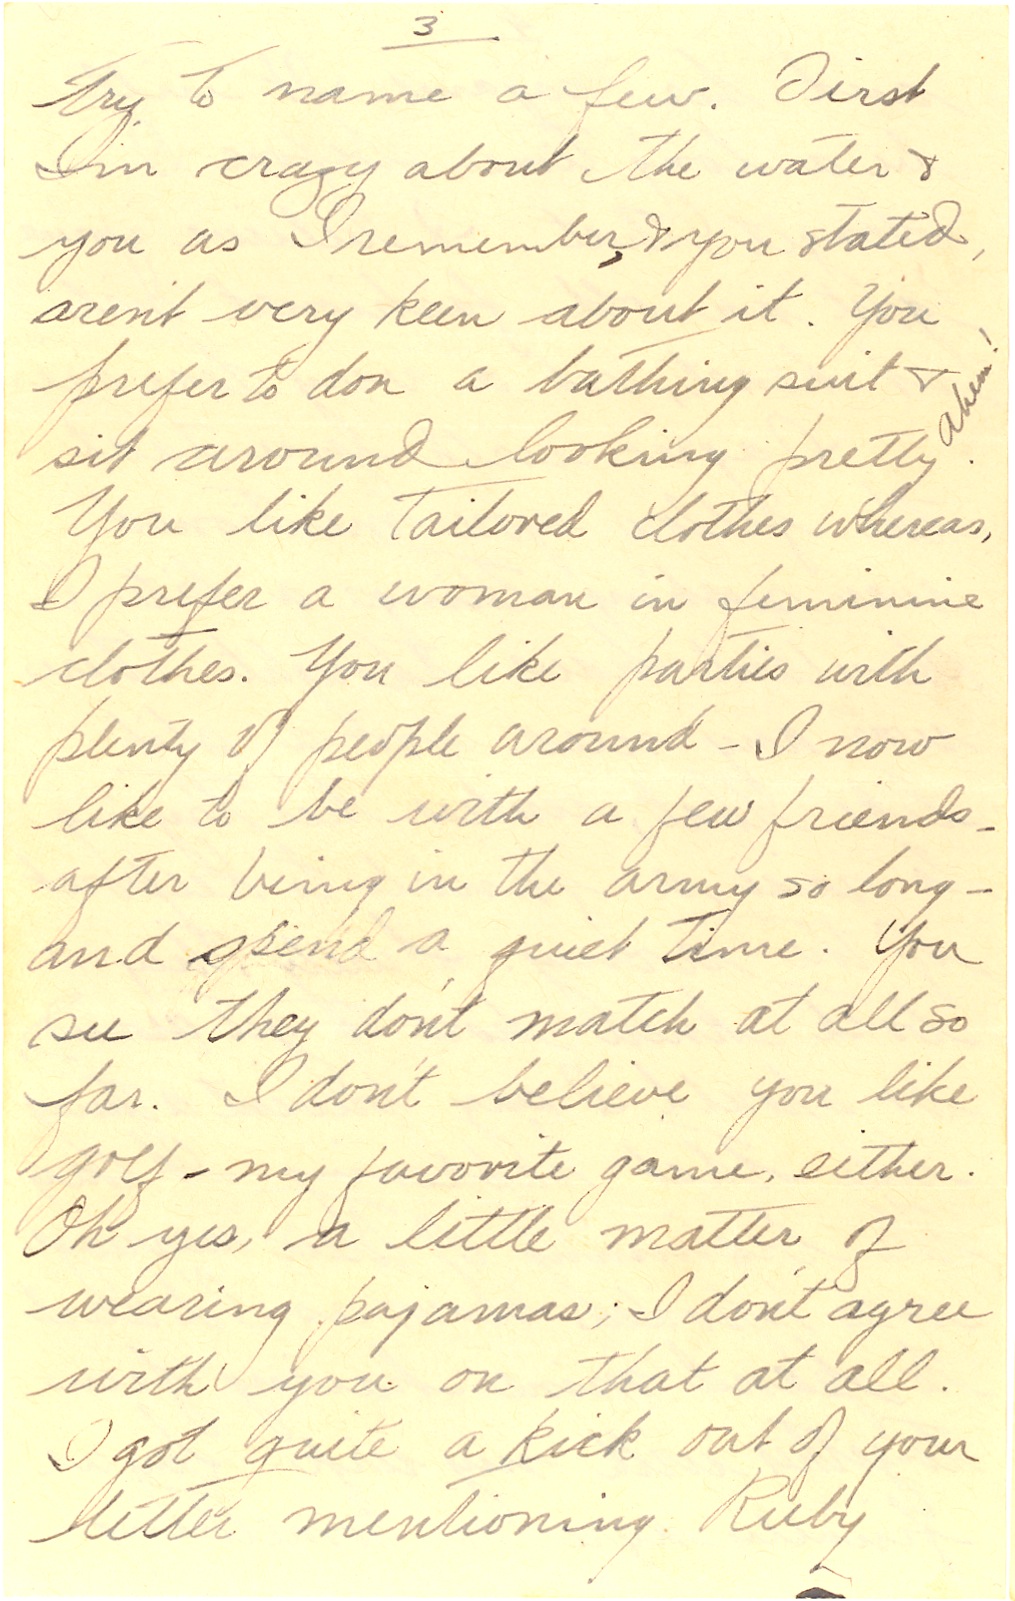 3
try to name a few. First
I'm crazy about the water &
you as I remember, & you stated,
aren't very keen about it. You
prefer to don a bathing suit &
sit around looking pretty ahem!.
You like tailored clothes whereas,
I prefer a woman in feminine
clothes. You like parties with
plenty of people around – I now
like to be with a few friends –
after being in the army so long –
and spend a quiet time. You
see they don't match at all so
far. I don't believe you like
golf – my favorite game, either.
Oh yes, a little matter of
wearing pajamas; I don't agree
with you on that at all.
I got quite a kick out of your
letter mentioning Ruby